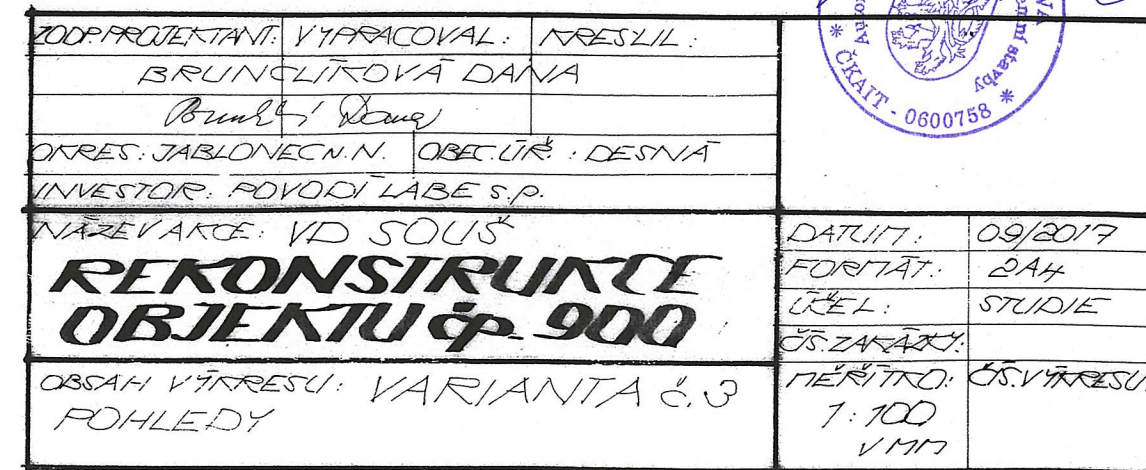 ZODP. PROJEKTANT: VYPRACOVAL: KRESLIL:
BRUNCLÍKOVÁ DANA
OKRES: JABLONEC N.N. OBEC. ÚŘ.: DESNÁ
INVESTOR: POVODÍ LABE s.p.
NÁZEV AKCE: VD SOUŠ
REKONSTRUKCE
OBJEKTU čp. 900
OBSAH VÝKRESU: VARIANTA č.3
POHLEDY
* ČKAIT - 0600758 *
DATUM: 09/2017
FORMÁT: 2A4
ÚČEL: STUDIE
ČÍS. ZAKÁZKY:
MĚŘÍTKO: ČÍS. VÝKRESU:
1:100
V MM